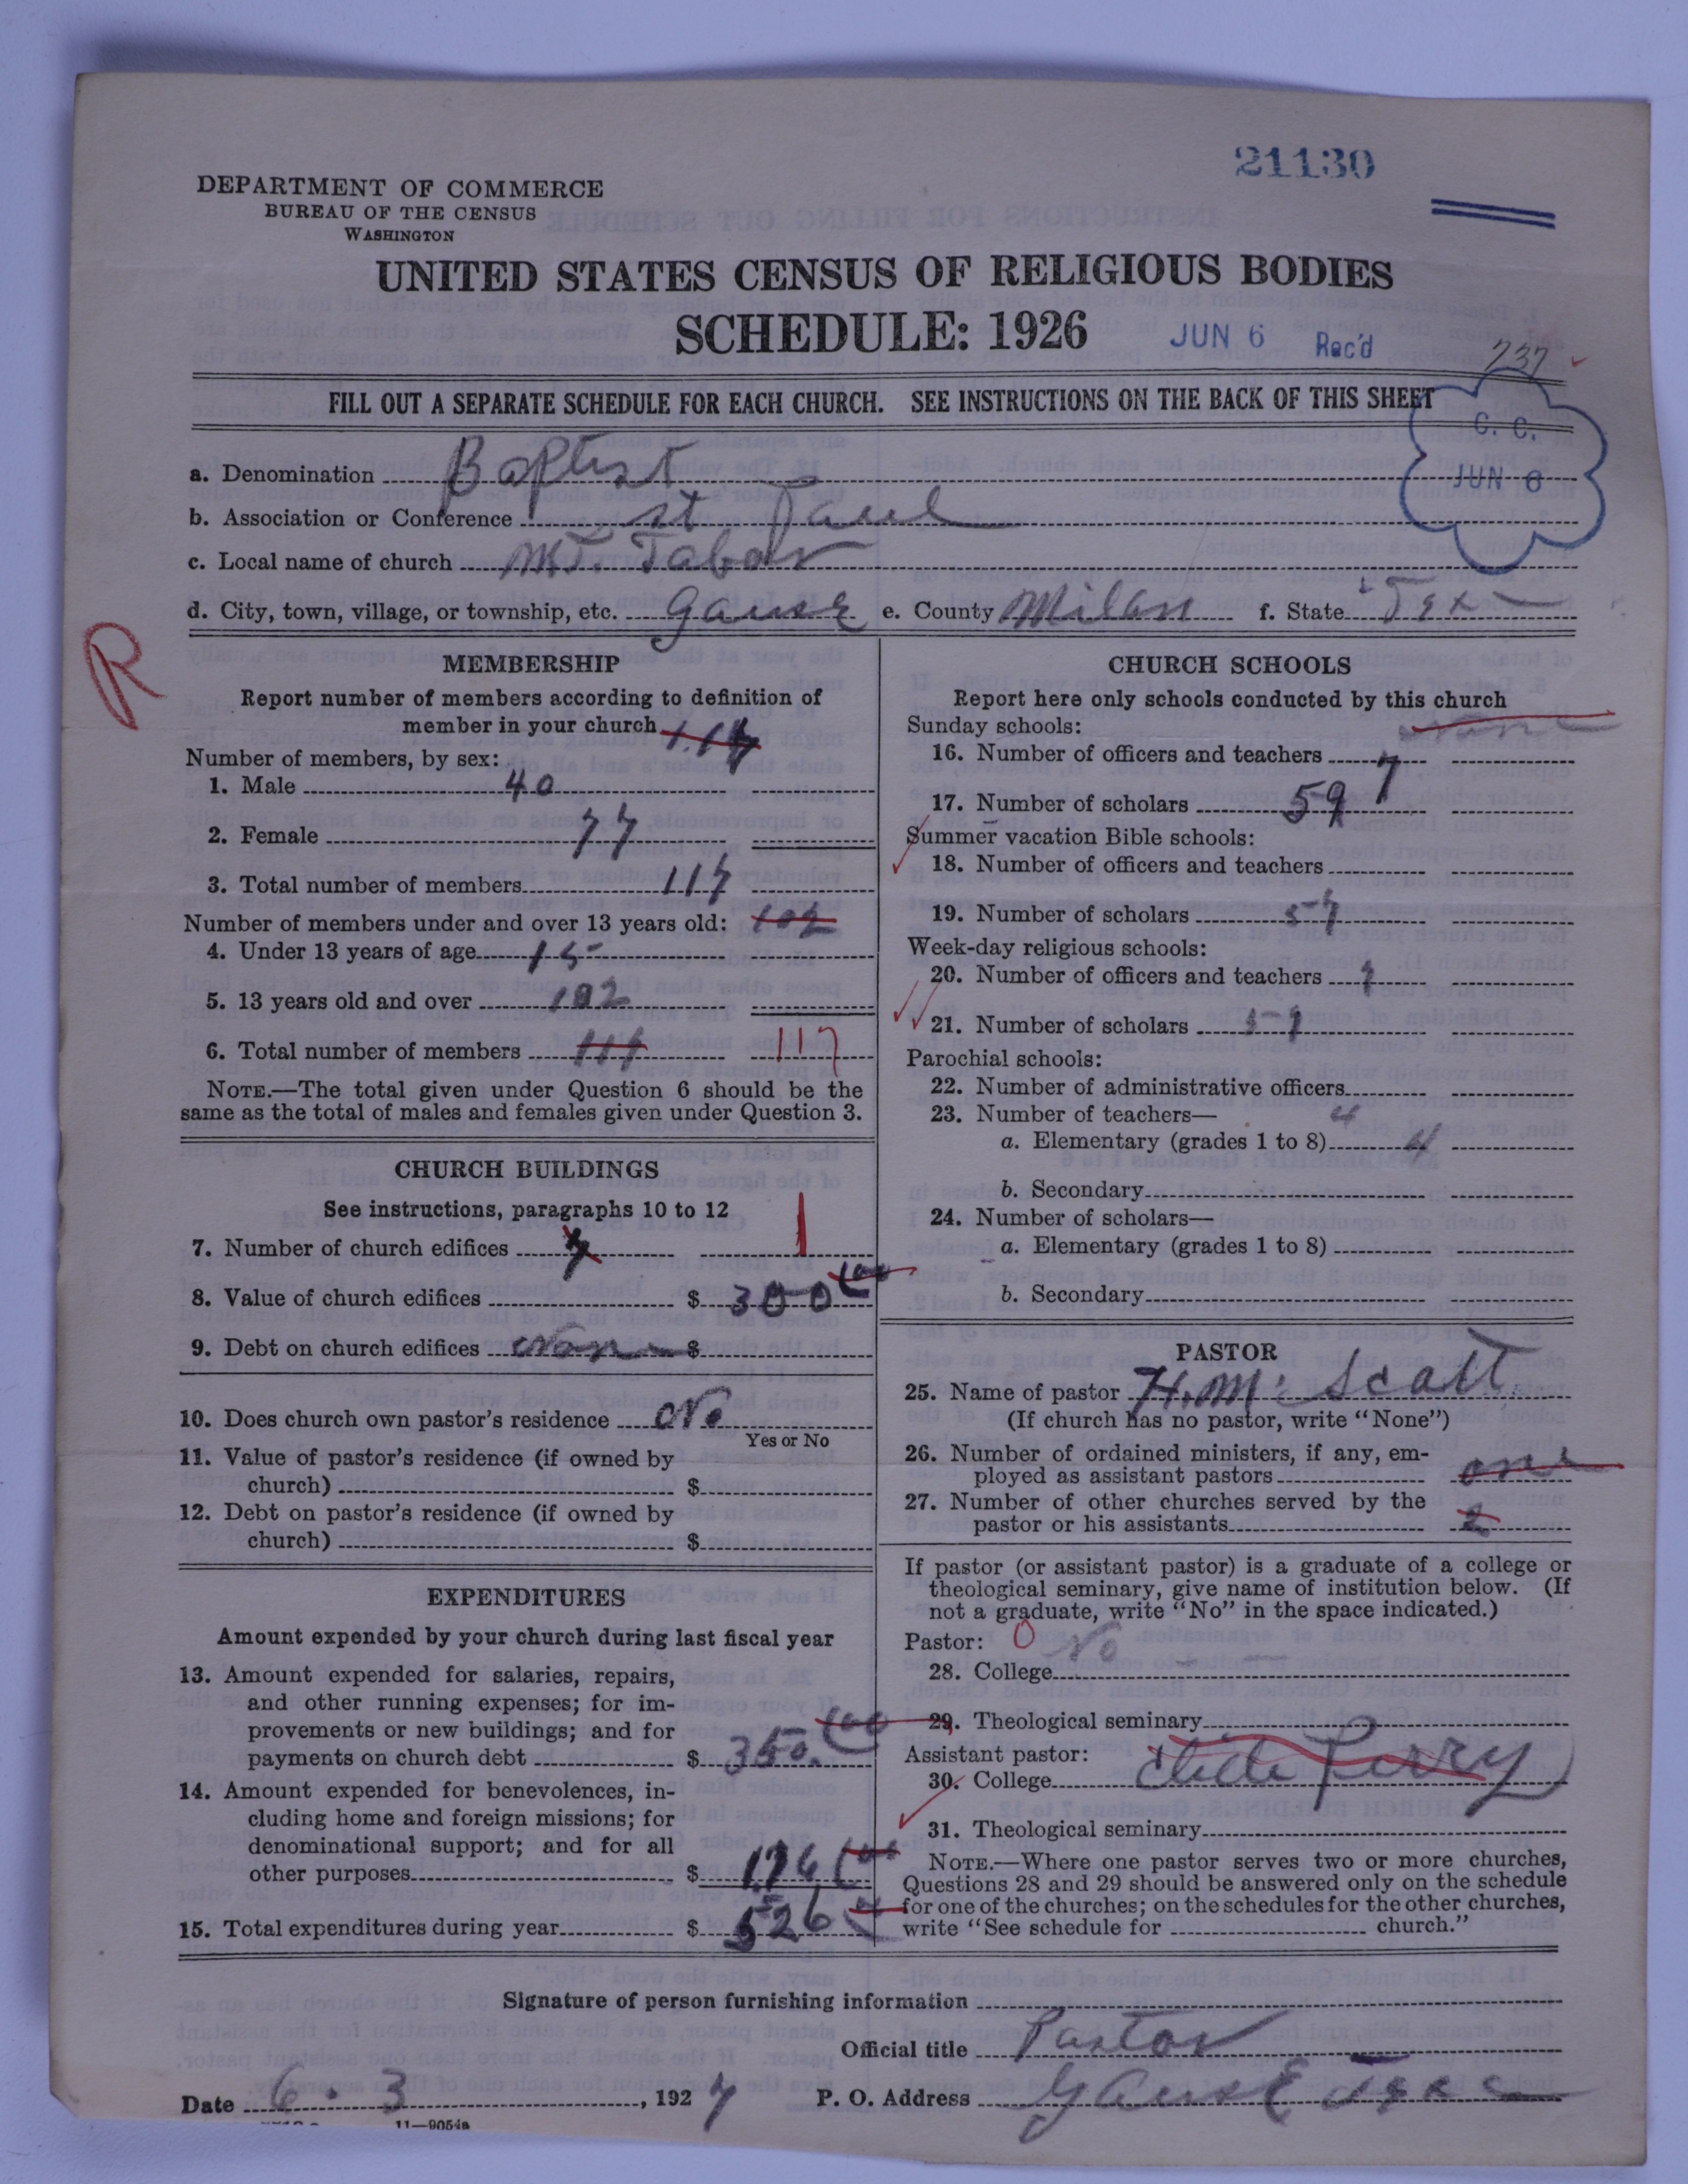 21130
DEPARTMENT OF COMMERCE
BUREAU OF THE CENSUS
WASHINGTON
UNITED STATES CENSUS OF RELIGIOUS BODIES
SCHEDULE: 1926 JUN 6 Rec'd
737
FILL OUT A SEPARATE SCHEDULE FOR EACH CHURCH. SEE INSTRUCTIONS ON THE BACK OF THIS SHEET
C. C.
JUN 6
a. Denomination Baptist
b. Association or Conference st Paul
c. Local name of church MT. Tabor
d. City, town, village, or township, etc. Gause e. County Milan f. State Tex
R
MEMBERSHIP
Report number of members according to definition of
member in your church 117
Number of members, by sex:
1. Male 40
2. Female 77
3. Total number of members 117
Number of members under and over 13 years old: 102
4. Under 13 years of age 15
5. 13 years old and over 102
6. Total number of members 117 117
NOTE.—The total given under Question 6 should be the
same as the total of males and females given under Question 3.
CHURCH BUILDINGS
See instructions, paragraphs 10 to 12
7. Number of church edifices 1
8. Value of church edifices $ 300 00
9. Debt on church edifices None $
10. Does church own pastor's residence No
Yes or No
11. Value of pastor's residence (if owned by
church) $
12. Debt on pastor's residence (if owned by
church) $
EXPENDITURES
Amount expended by your church during last fiscal year
13. Amount expended for salaries, repairs,
and other running expenses; for im-
provements or new buildings; and for
payments on church debt $ 350. 00
14. Amount expended for benevolences, in-
cluding home and foreign missions; for
denominational support; and for all
other purposes $ 176 00
15. Total expenditures during year $ 526
CHURCH SCHOOLS
Report here only schools conducted by this church
Sunday schools: none
16. Number of officers and teachers 7
17. Number of scholars 59
Summer vacation Bible schools:
18. Number of officers and teachers
19. Number of scholars 57
Week-day religious schools:
20. Number of officers and teachers
21. Number of scholars
Parochial schools:
22. Number of administrative officers
23. Number of teachers— 4
a. Elementary (grades 1 to 8) 4
b. Secondary
24. Number of scholars—
a. Elementary (grades 1 to 8)
b. Secondary
PASTOR
25. Name of pastor H. Mc Scott
(If church has no pastor, write "None")
26. Number of ordained ministers, if any, em-
ployed as assistant pastors one
27. Number of other churches served by the
pastor or his assistants 2
If pastor (or assistant pastor) is a graduate of a college or
theological seminary, give name of institution below. (If
not a graduate, write "No" in the space indicated.)
Pastor: 0 No
28. College
29. Theological seminary
Assistant pastor:
30. College Perry
31. Theological seminary
NOTE.—Where one pastor serves two or more churches,
Questions 28 and 29 should be answered only on the schedule
for one of the churches; on the schedules for the other churches,
write "See schedule for church."
Signature of person furnishing information
Official title Pastor
Date 6 . 3 , 1927 P. O. Address Gause Texas
11—9054a